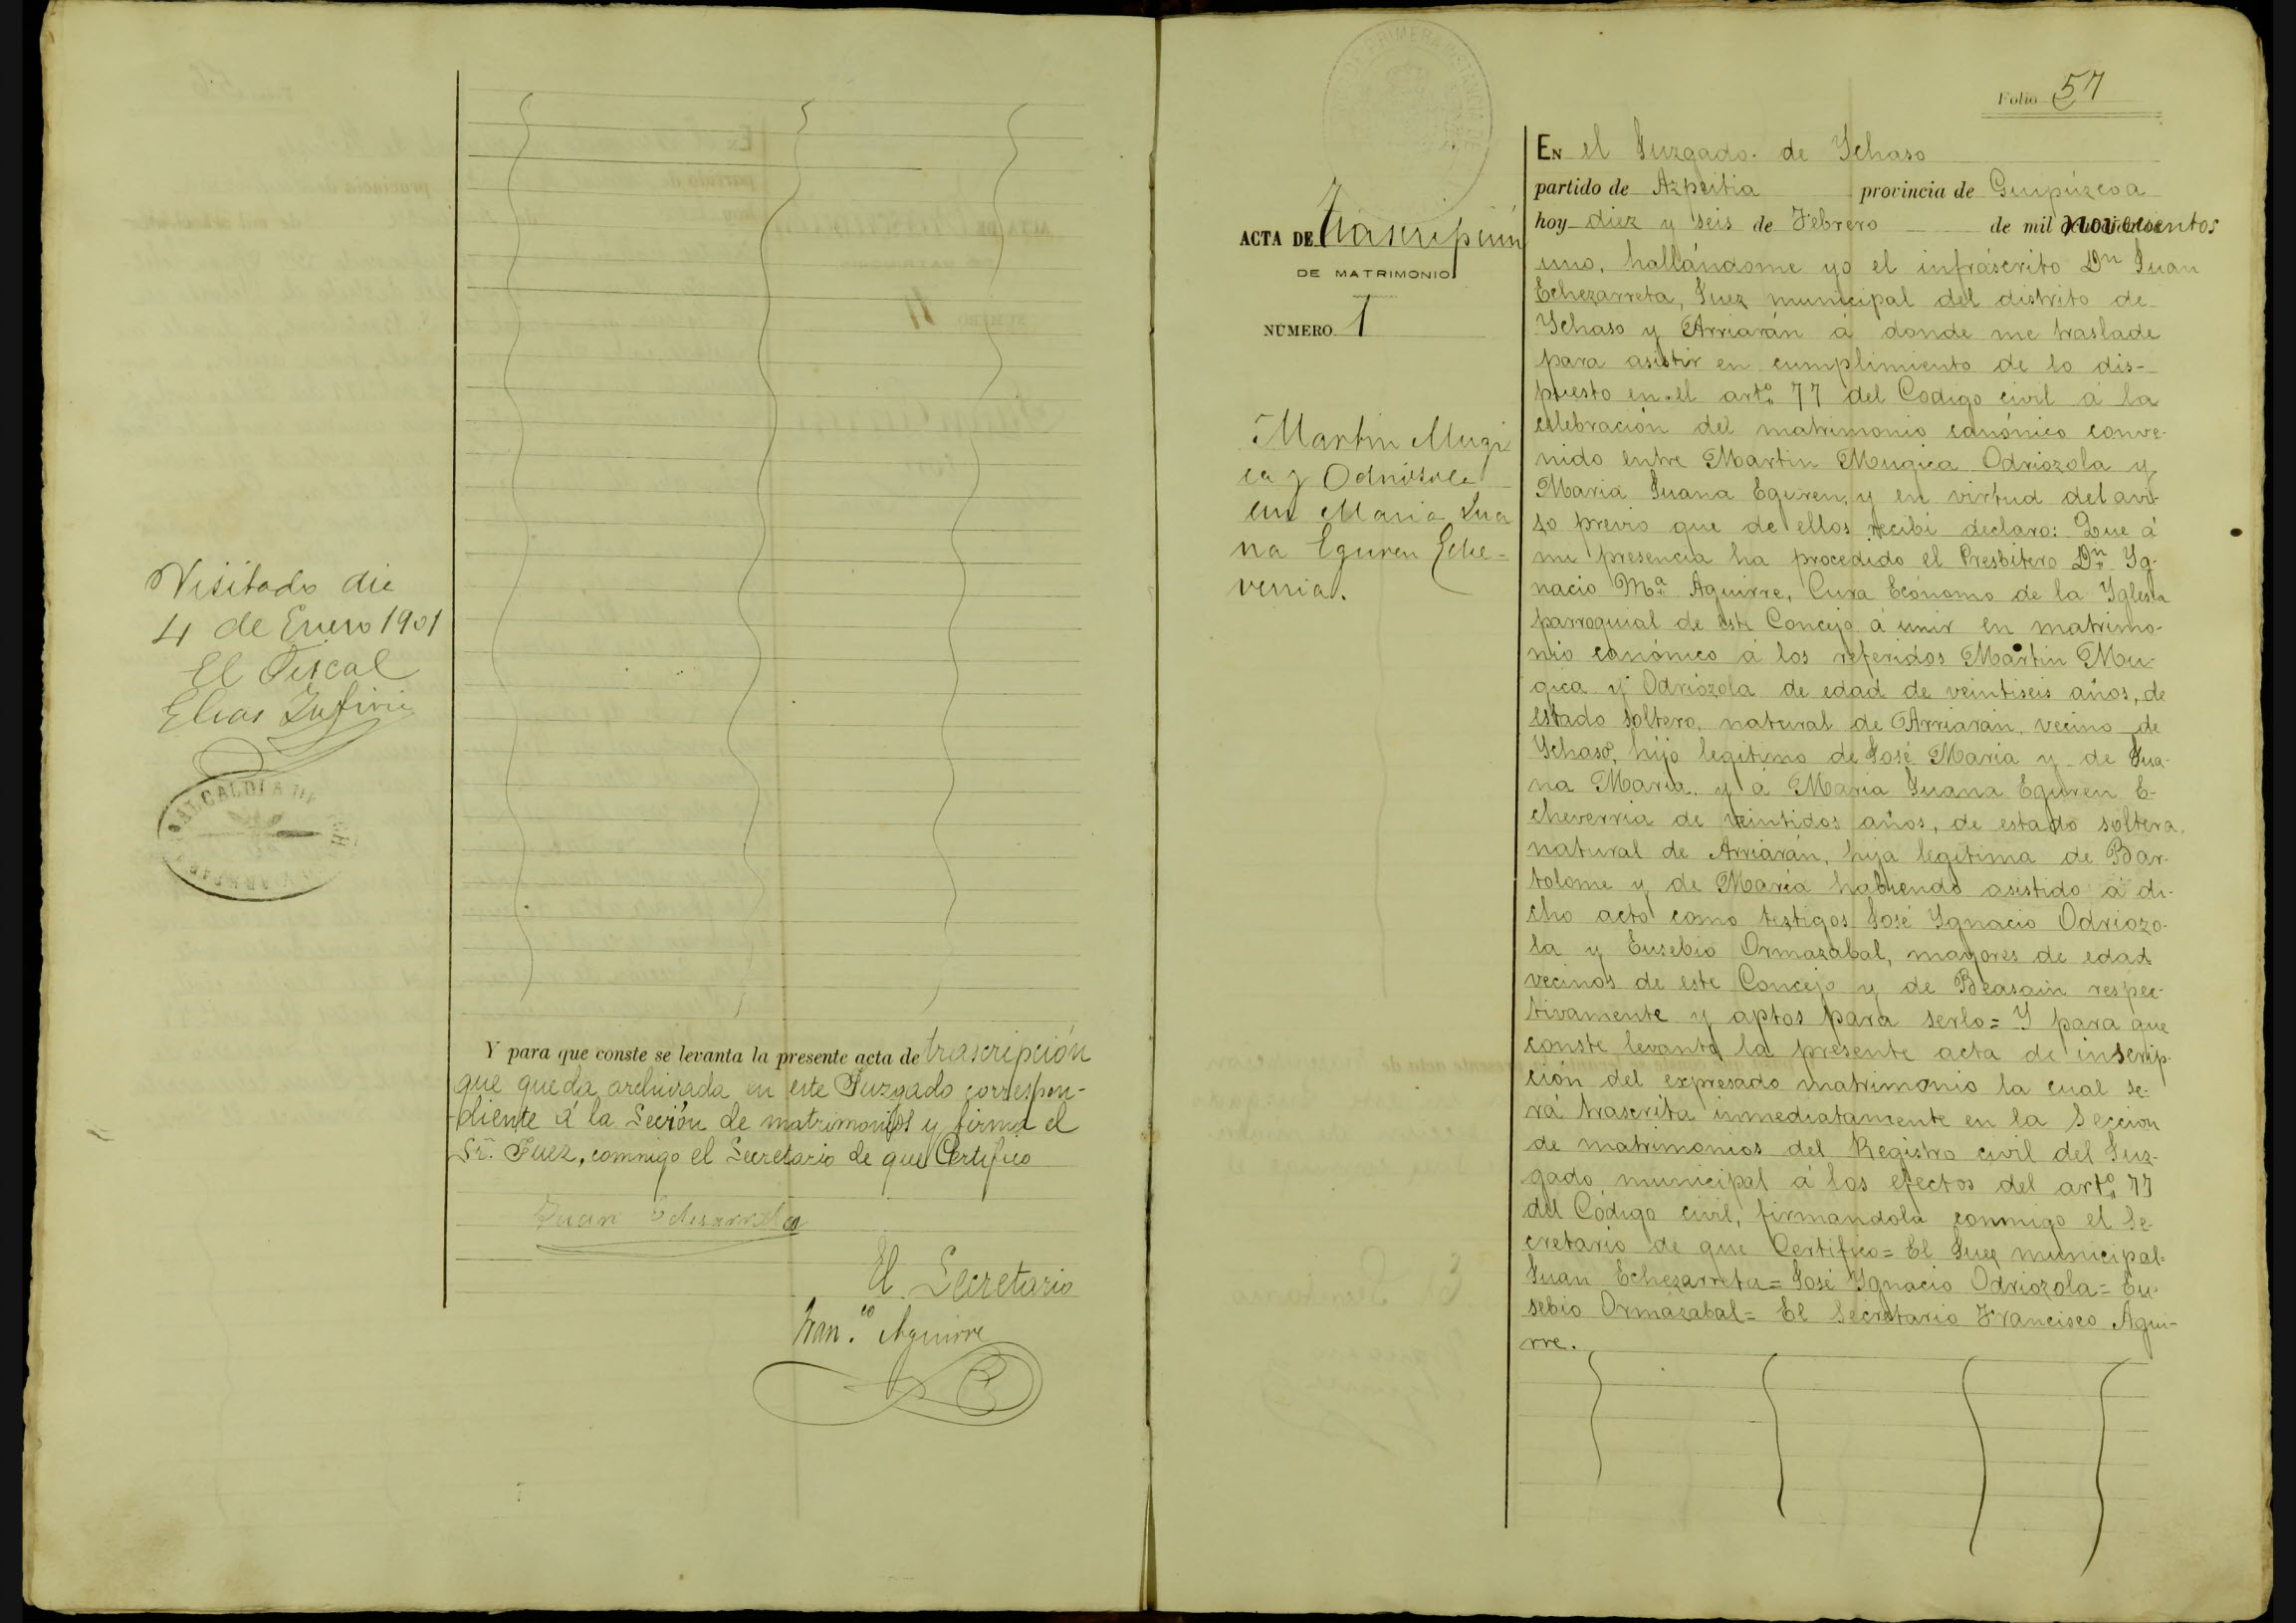 Visitado dia
4 de Enero 1901
El Fiscal
Elias
ALCALDIA DE
Y para que conste se levanta la presente acta de trascripción
que queda archivada en este Juzgado correspon-
diente á la Seción de matrimonios y firma el
Sr. Juez, conmigo el Secretario de que Certifico
Juan Echezarreta
El Secretario
Fran.co Aguirre
PRIMERA INSTANCIA DE
Folio 57
ACTA DE Trascripción
DE MATRIMONIO
NÚMERO 1
Martin Mugi
ca y Odriozola
con Maria Jua
na Eguren Eche-
verria.
EN el Juzgado de Ychaso
partido de Azpeitia provincia de Guipúzcoa
hoy diez y seis de Febrero de mil novecientos
uno, hallándome yo el infrascrito Dn Juan
Echezarreta, Juez municipal del distrito de
Ychaso y Arriarán á donde me traslade
para asistir en cumplimiento de lo dis-
puesto en el artº 77 del Codigo civil á la
celebración del matrimonio canónico conve-
nido entre Martin Mugica Odriozola y
Maria Juana Eguren, y en virtud del avi-
so previo que de ellos recibi declaro: Que á
mi presencia ha procedido el Presbitero Dn Yg-
nacio Mª Aguirre, Cura Ecónomo de la Yglesia
parroquial de este Concejo á unir en matrimo-
nio canónico á los referidos Martin Mu-
gica y Odriózola de edad de veintiseis años, de
estado soltero, natural de Arriarán, vecino de
Ychaso, hijo legitimo de José Maria y de Jua-
na Maria. y á Maria Juana Eguren E-
cheverria de veintidos años, de estado soltera,
natural de Arriarán, hija legitima de Bar-
tolome y de Maria habiendo asistido á di-
cho acto como testigos José Ygnacio Odriozo-
la y Eusebio Ormazabal, mayores de edad
vecinos de este Concejo y de Beasain respec-
tivamente y aptos para serlo= Y para que
conste levanto la presente acta de inscrip-
ción del expresado matrimonio la cual se-
rá trascrita inmediatamente en la Seccion
de matrimonios del Registro civil del Juz-
gado municipal á los efectos del artº 77
del Código civil, firmandola conmigo el Se-
cretario de que Certifico= El Juez municipal-
Juan Echezarreta= José Ygnacio Odriozola= Eu-
sebio Ormazabal= El Secretario Francisco Agui-
rre.